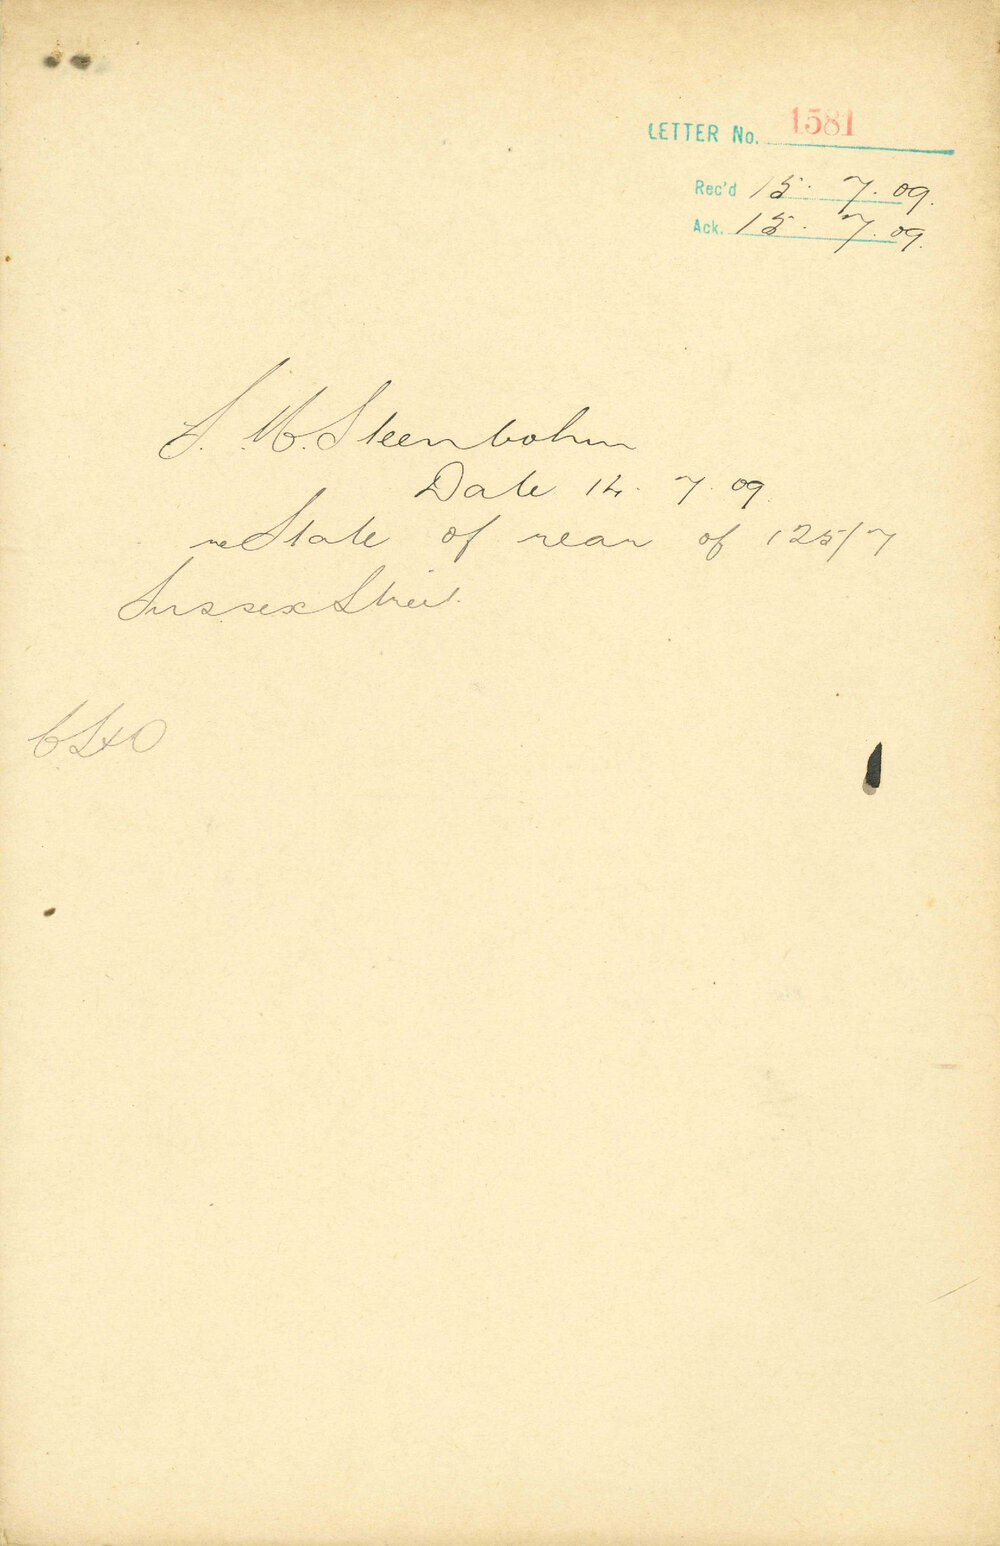 LETTER No. 1581
Rec'd 15. 7. 09.
Ack. 15. 7. 09.
Steenbohm
Date 14. 7. 09
re State of rear of 125/7
Sussex Street.